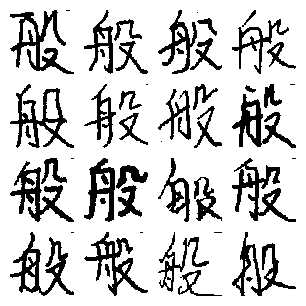 般般般般
般般般般
般般般般
般般般般